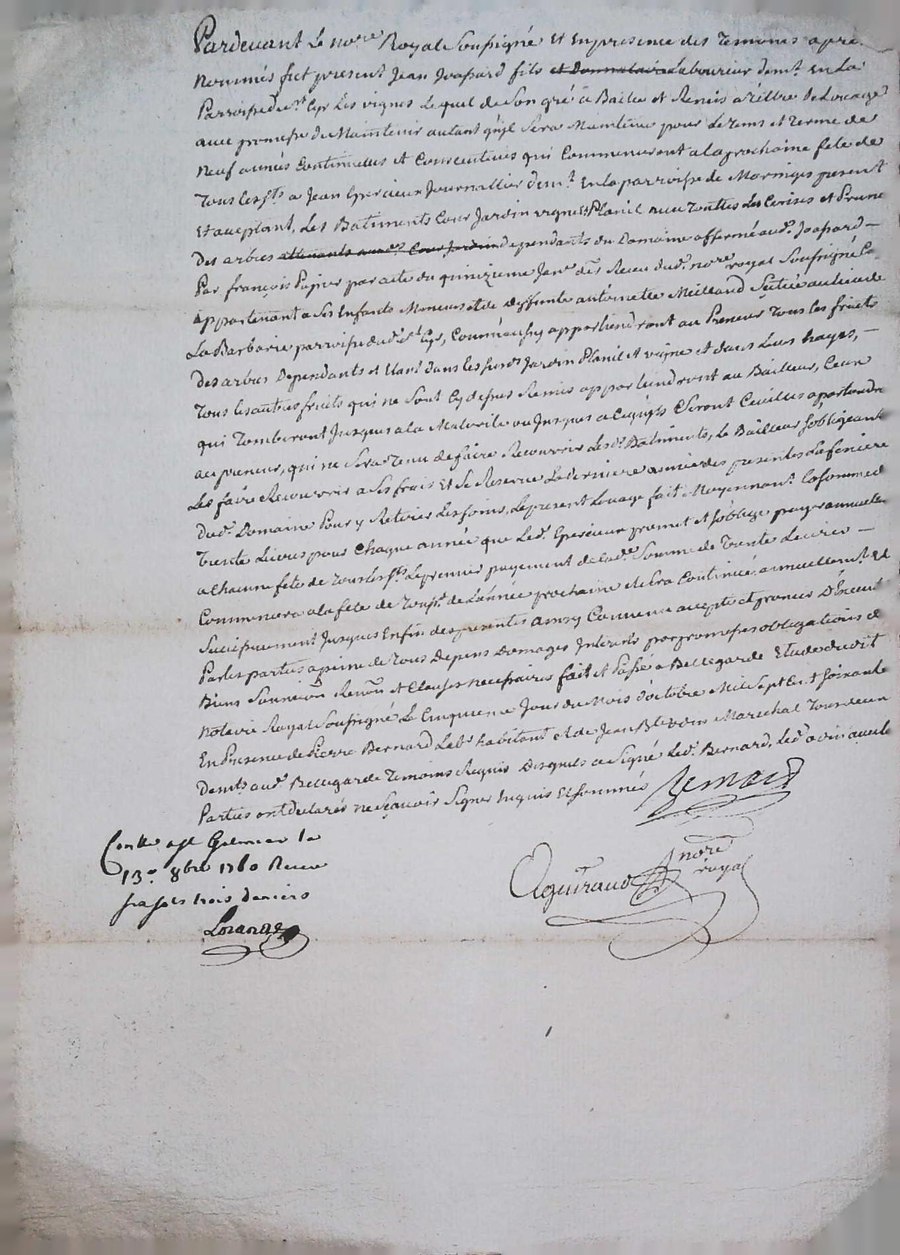 Pardevant Le no.re Royal Soussigné et En presence des Temoins apres
Nommés fut present Jean Joassard fils et donnataire Laboureur dem.t en La
Parroisse de S.t Cyr Les vignes Lequel de Son gré a Baillé et Remis a titre de Louage
avec promesse de Maintenir autant quil Sera Maintenu pour Le tems et terme de
Neuf années Continuelles et Consecutives qui Commenceront a la prochaine fete de
Toussts a Jean Epercieux Journallier dem.t En la parroisse de Moringes present
Et acceptant, Les Batiments Cour Jardin vigne et Planil avec Touttes Les Cerises et Prune
Des arbres attenants aux d. Cour Jardin dependants du Domaine affermé aud. Joassard
Par françois Papier par acte du quinzieme Jan.r der Receu dud. no.re royal Soussigné
appartenant a Ses Enfants Mineurs et de deffunte antoinette Milland Scitué au lieu de
La Barbarie parroisse dud. S.t Cyr, Comme aussy appartiendront au Preneur Tous les fruits
Des arbres Dependants et Etant dans les susd. Jardin Planil et vigne et dans Leurs hayes,
Tous les autres fruits qui ne Sont Cy desus Remis appartiendront au Bailleur, Ceux
qui Tomberont Jusques a la Maturité ou Jusques a Ce quils Seront Ceuillis apartiendr
au preneur, qui ne Sera Tenu de faire Recouvrir Les d. Batiments, Le Bailleur S'obligeant
Les faire Recouvrir a Ses frais Et Se Reserve La derniere année des presentes La feniere
dud. Domaine Pour y Retirer Les foins, Le present Louage fait Moyennant La Somme de
Trente Livres pour Chaque année que Led. Epercieux promet et S'oblige payer annuellem
a Chacune fete de Toussts Le premier payement de lad. Somme de Trente Livres
Commencera a la fete de Touss. de L'année prochaine et Sera Continué annuellement Et
Successivement Jusques Enfin des presentes ainsy Convenu accepté et promis D'Executer
Par les parties a peine de Tous Depens Domages Interets par promesses obligations de
Biens Soumission Renon et Clauses necessaires fait et Passé a Bellegarde Etude dudit
Notaire Royal Soussigné Le Cinquieme Jour du Mois d'octobre Mil Sept Cent Soixante
En Presence de Pierre Bernard Lab.r habitant et de Jean Marechal
dem.ts aud. Bellegarde Temoins Requis Desquels a Signé Led. Bernard, Led. avec
Parties ont declarés ne Sçavoir Signer Enquis Et Sommés Bernard
Con.lle a S.t Galmier le
13.e 8bre 1760 Receu
treize sols trois deniers
Aguiraud no.re
royal